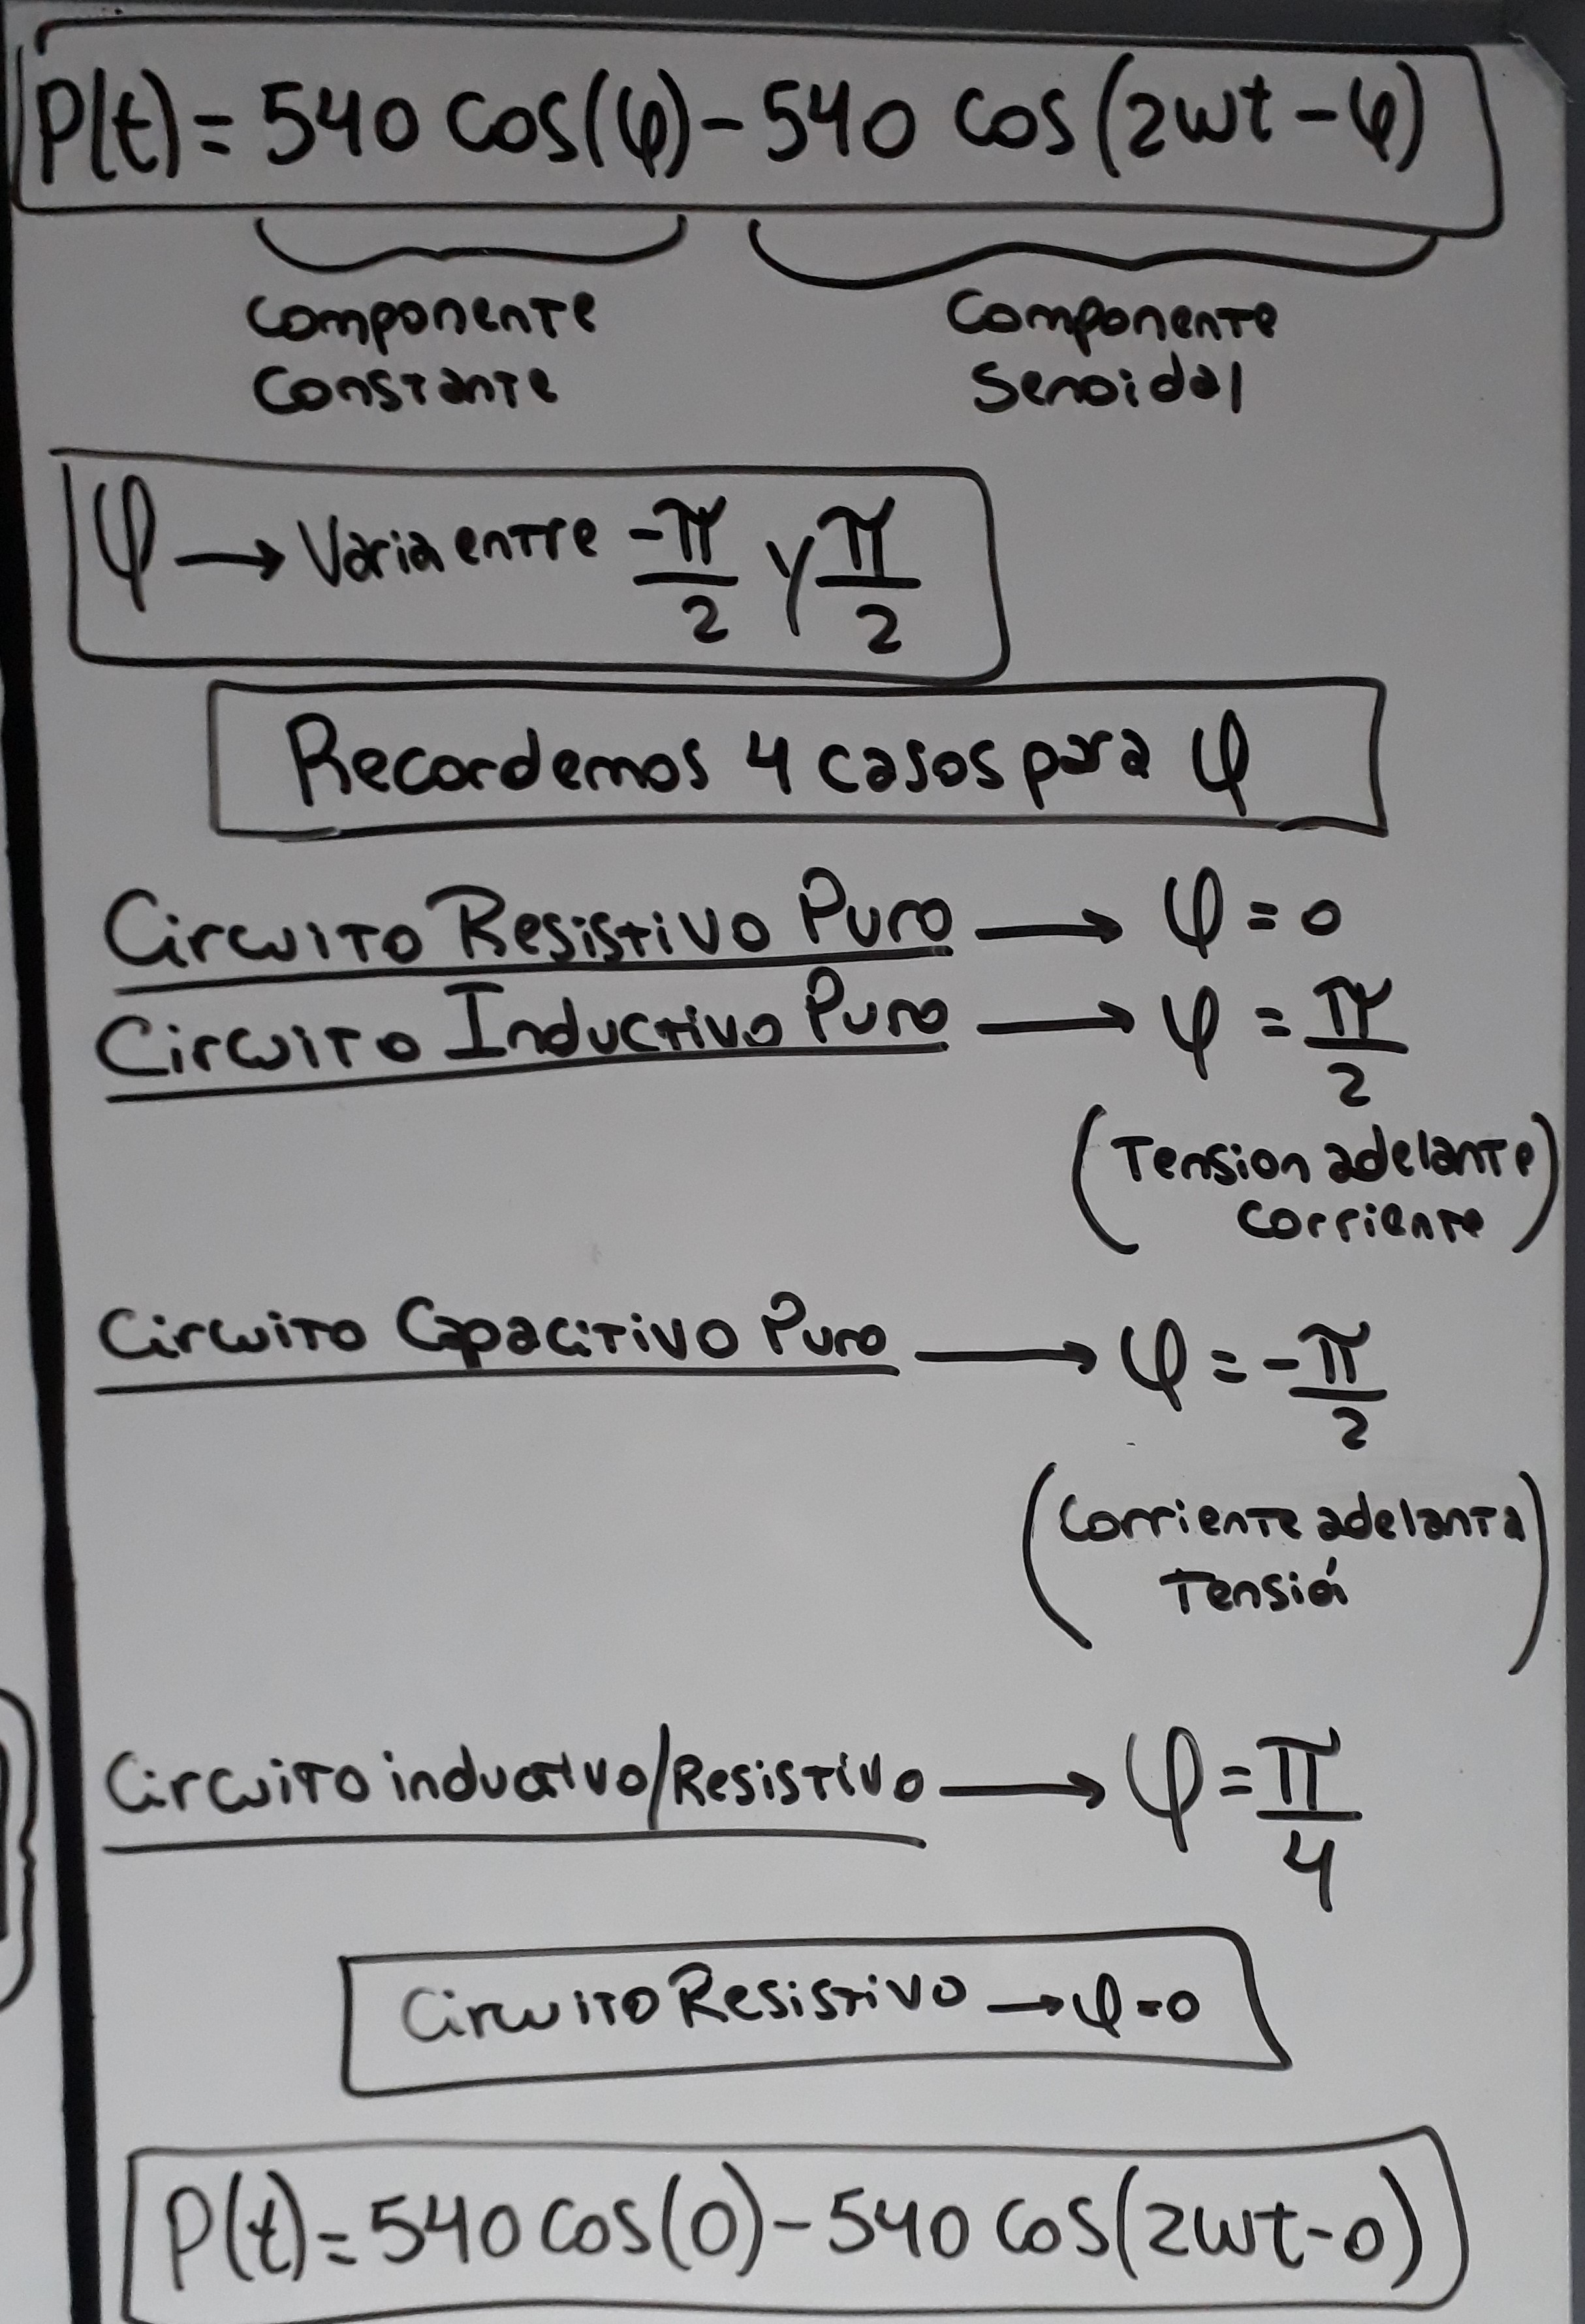 P(t) = 540 cos(φ) - 540 cos(2wt - φ)
Componente Componente
Constante Senoidal
φ → Varia entre -π/2 y π/2
Recordemos 4 casos para φ
Circuito Resistivo Puro → φ = 0
Circuito Inductivo Puro → φ = π/2
(Tension adelante
corriente)
Circuito Capacitivo Puro → φ = -π/2
(Corriente adelanta
Tensió)
Circuito inductivo/Resistivo → φ = π/4
Circuito Resistivo → φ=0
P(t) = 540 cos(0) - 540 cos(2wt - 0)